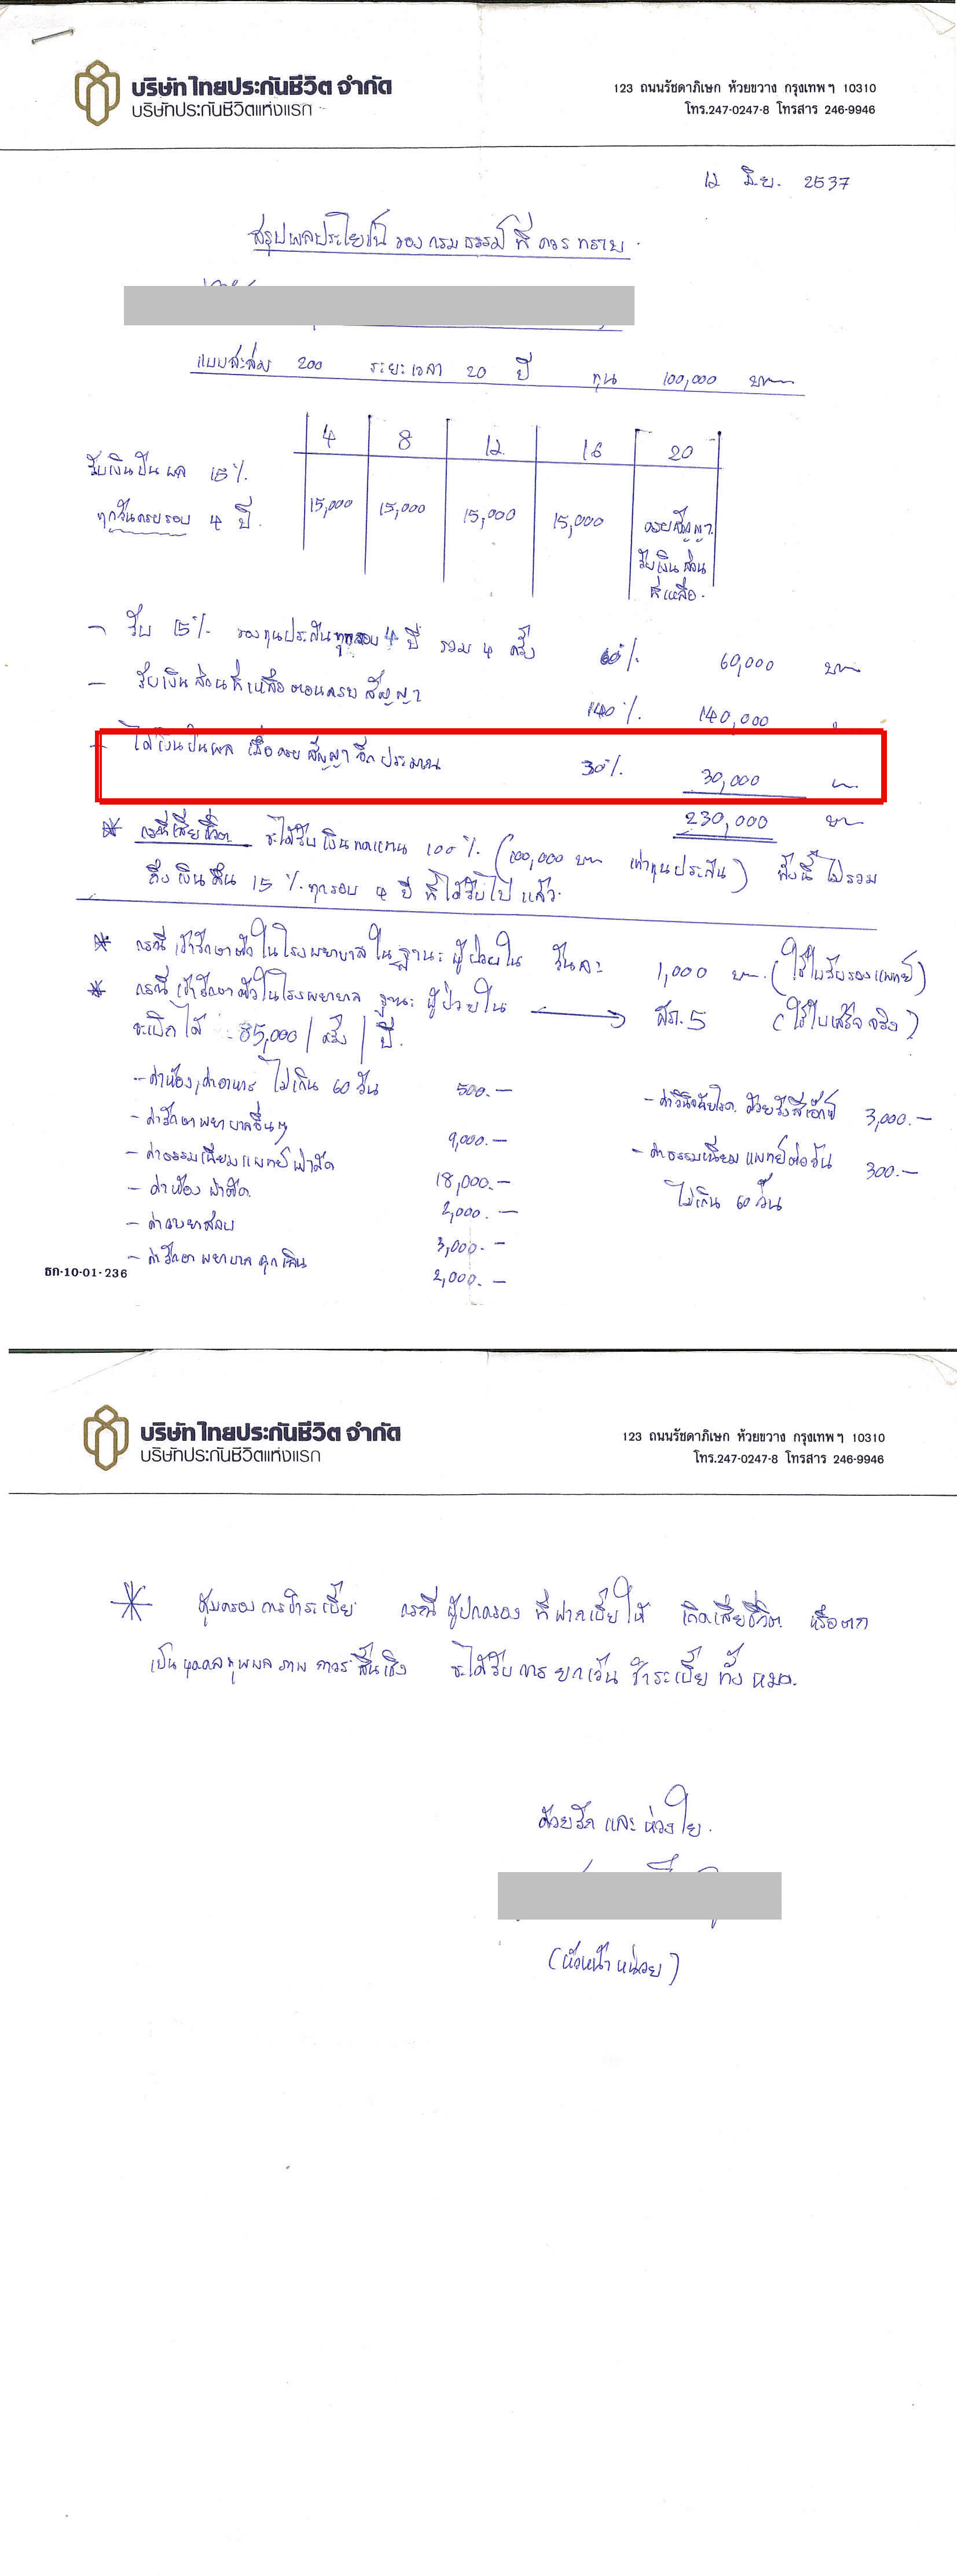 บริษัท ไทยประกันชีวิต จำกัด
บริษัทประกันชีวิตแห่งแรก
123 ถนนรัชดาภิเษก ห้วยขวาง กรุงเทพฯ 10310
โทร.247-0247-8 โทรสาร 246-9946
12 มิย. 2537
สรุปผลประโยชน์ ของ กรมธรรม์ ที่ ควร ทราบ
แบบสะสม 200 ระยะเวลา 20 ปี ทุน 100,000 บาท
4 8 12 16 20
รับเงินปันผล 15%
ทุกวันครบรอบ 4 ปี.
15,000 15,000 15,000 15,000 ครบสัญญา
รับเงินส่วน
ที่เหลือ.
- รับ 15% ของทุนประกันทุกรอบ 4 ปี รวม 4 ครั้ง 60% 60,000 บาท
- รับเงินส่วนที่เหลือตอนครบสัญญา 140% 140,000
- ได้เงินปันผล เมื่อครบสัญญา อีก ประมาณ 30% 30,000 บาท
230,000 บาท
* กรณีเสียชีวิต จะได้รับเงินทดแทน 100% (100,000 บาท เท่าทุนประกัน) ทั้งนี้ ไม่รวม
ถึงเงินคืน 15% ทุกรอบ 4 ปี ที่ได้รับไปแล้ว.
* กรณี เข้ารักษาตัวในโรงพยาบาล ในฐานะ ผู้ป่วยใน วันละ 1,000 บาท (ใช้ใบรับรองแพทย์)
* กรณี เข้ารักษาตัวในโรงพยาบาล ฐานะ ผู้ป่วยใน → 5 (ใช้ใบเสร็จจริง)
จะเบิกได้ 85,000 / ครั้ง / ปี.
- ค่าห้อง, ค่าอาหาร ไม่เกิน 60 วัน 500.-
- ค่ารักษาพยาบาลอื่นๆ 9,000.-
- ค่าธรรมเนียมแพทย์ผ่าตัด 18,000.-
- ค่าห้องผ่าตัด 2,000.-
- ค่าวางยาสลบ 3,000.-
- ค่ารักษาพยาบาลฉุกเฉิน 2,000.-
- ค่าวินิจฉัยโรค ด้วยรังสีเอ็กซ์ 3,000.-
- ค่าธรรมเนียมแพทย์ต่อวัน 300.-
ไม่เกิน 60 วัน
ธก-10-01-236
บริษัท ไทยประกันชีวิต จำกัด
บริษัทประกันชีวิตแห่งแรก
123 ถนนรัชดาภิเษก ห้วยขวาง กรุงเทพฯ 10310
โทร.247-0247-8 โทรสาร 246-9946
* คุ้มครองการชำระเบี้ย กรณี ผู้ปกครอง ที่ฝากเบี้ยให้ เกิดเสียชีวิต หรือตก
เป็นบุคคลทุพพลภาพ ถาวรสิ้นเชิง จะได้รับการยกเว้น ชำระเบี้ย ทั้งหมด.
ด้วยรัก และ ห่วงใย.
(หัวหน้าหน่วย)